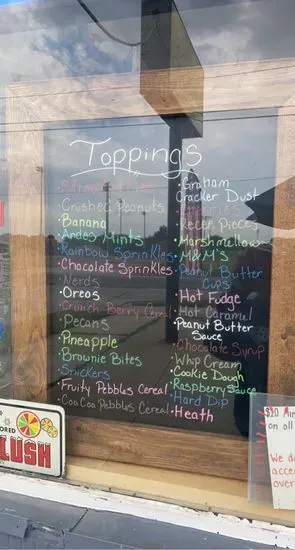 Toppings
Crushed Peanuts
Banana
Andes Mints
Rainbow Sprinkles
Chocolate Sprinkles
Nerds
Oreos
Crunch Berry Cereal
Pecans
Pineapple
Brownie Bites
Snickers
Fruity Pebbles Cereal
CoaCoa Pebbles Cereal
Graham
Cracker Dust
Pieces
Marshmallow
M&M's
Peanut Butter
Cups
Hot Fudge
Hot Caramel
Peanut Butter
Sauce
Chocolate Syrup
Whip Cream
Cookie Dough
Raspberry Sauce
Hard Dip
Heath
ORED
LUSH
$20 Min
on all
We do
acce
over